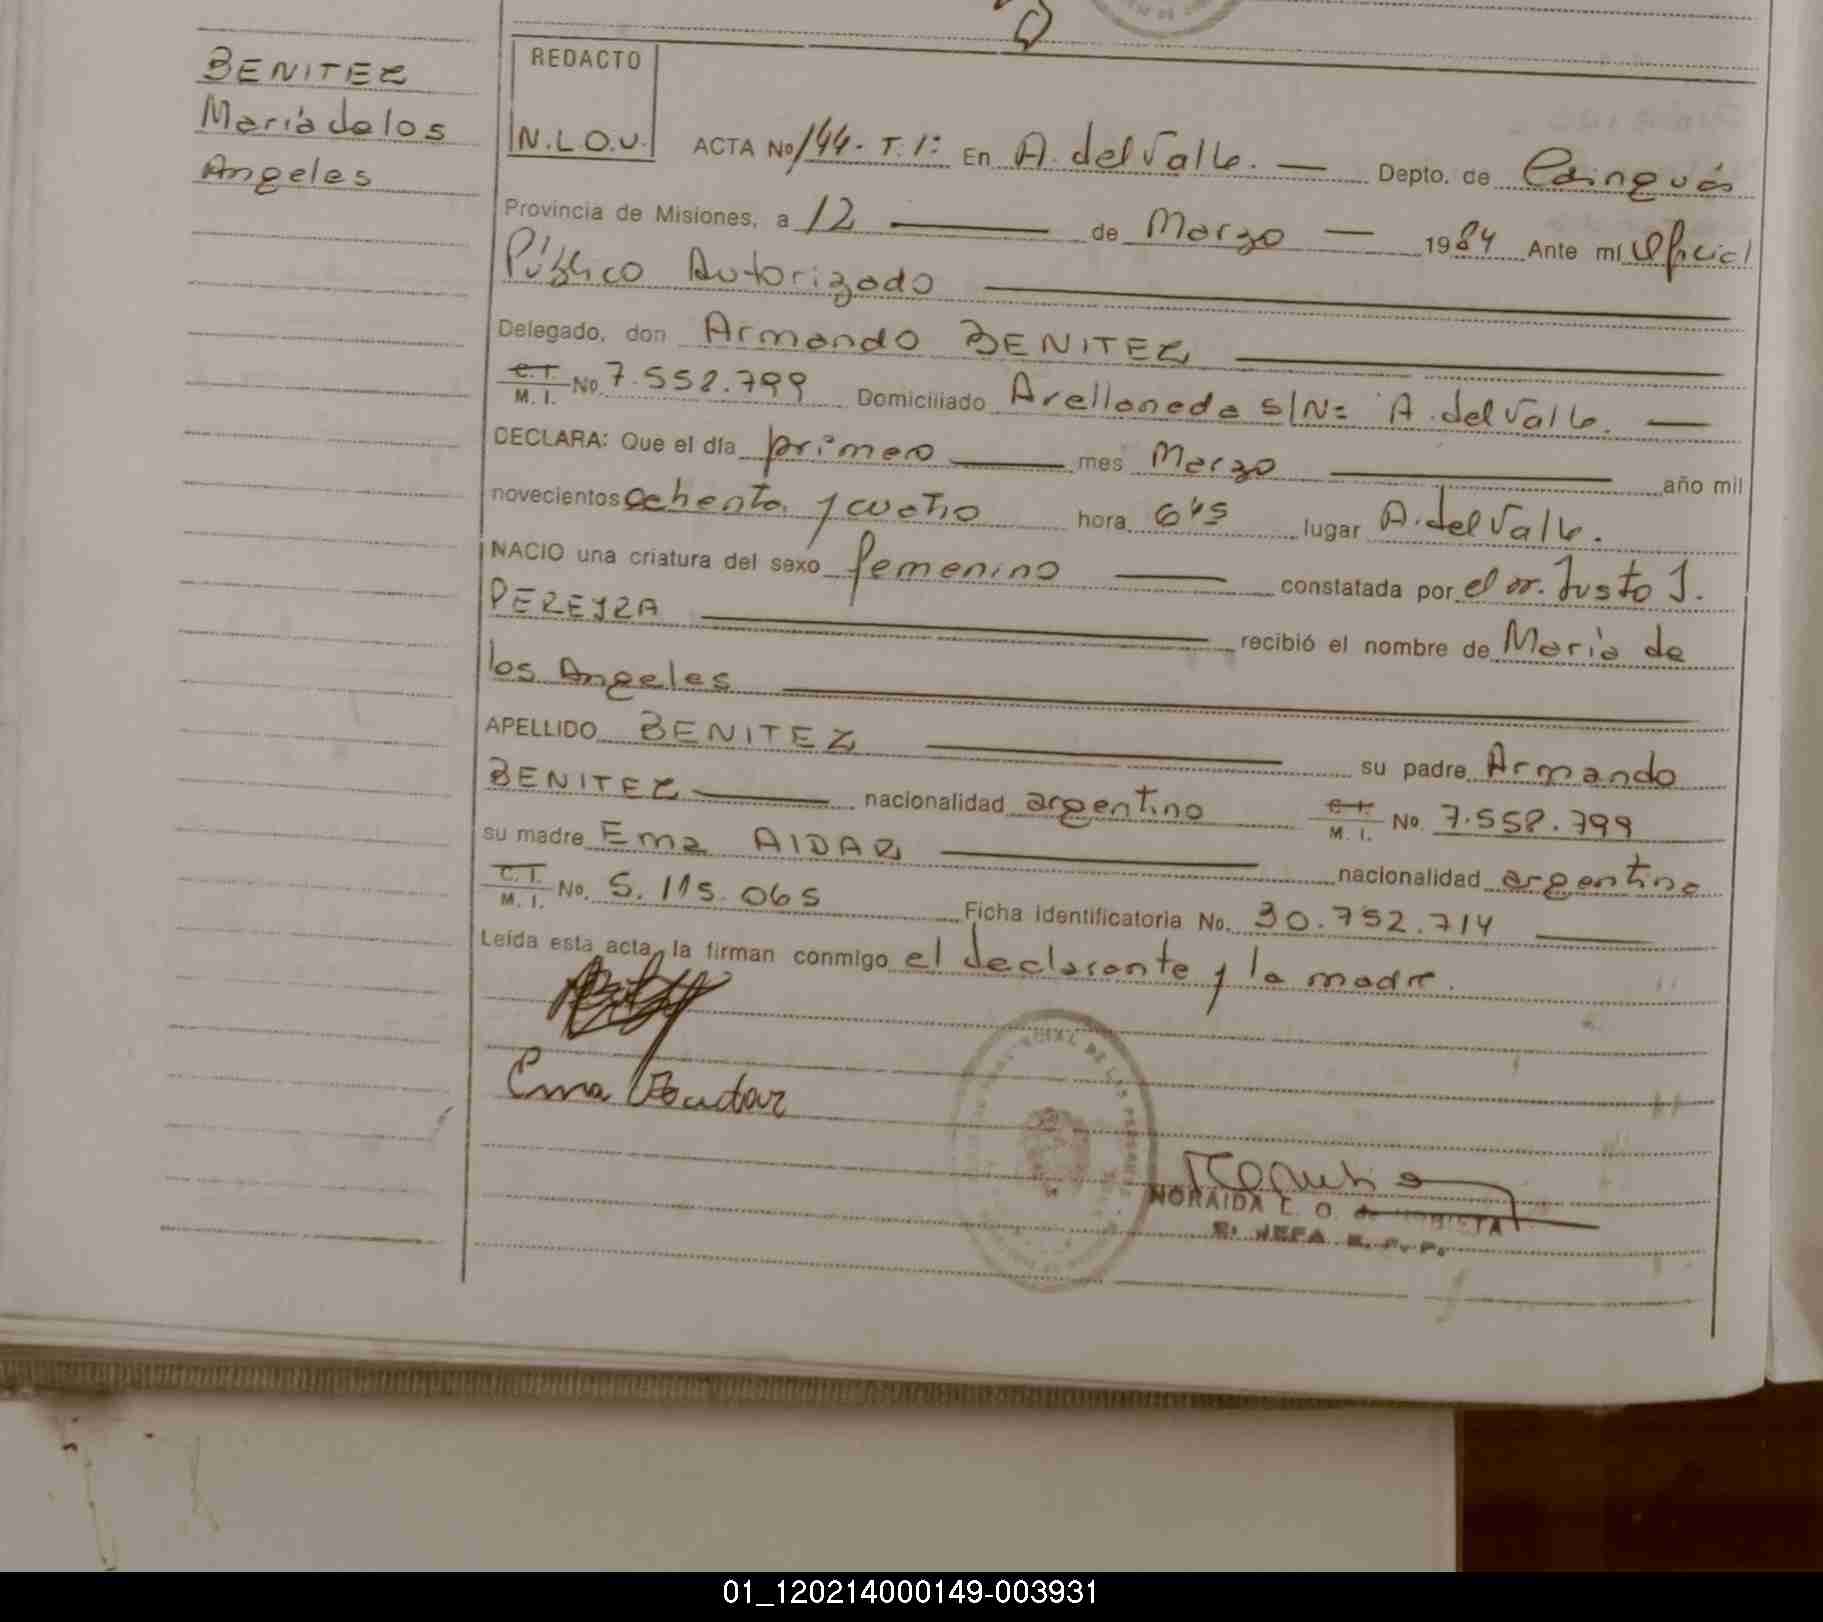 BENITEZ
María de los
Angeles
REDACTO
N.L.O.U.
ACTA No 144- T. 1: En A. del Valle. Depto. de Cainguás
Provincia de Misiones, a 12 de Marzo 1984 Ante mí Oficial
Público Autorizado
Delegado, don Armando BENITEZ
C.I. M. I. No. 7.558.799 Domiciliado Avellaneda S/N= A. del Valle.
DECLARA: Que el día primero mes Marzo año mil
novecientos ochenta y cuatro hora 6'45 lugar A. del Valle.
NACIO una criatura del sexo femenino constatada por el Dr. Justo J.
PEREYRA recibió el nombre de María de
los Angeles
APELLIDO BENITEZ su padre Armando
BENITEZ nacionalidad argentino C.I. M. I. No. 7.558.799
su madre Ema AIDAR nacionalidad argentina
C.I. M. I. No. 5.115.065 Ficha identificatoria No. 30.752.714
Leída esta acta, la firman conmigo el declarante y la madre.
Ema
NORAIDA L. O. de
JEFA R. P. P.
01_120214000149-003931